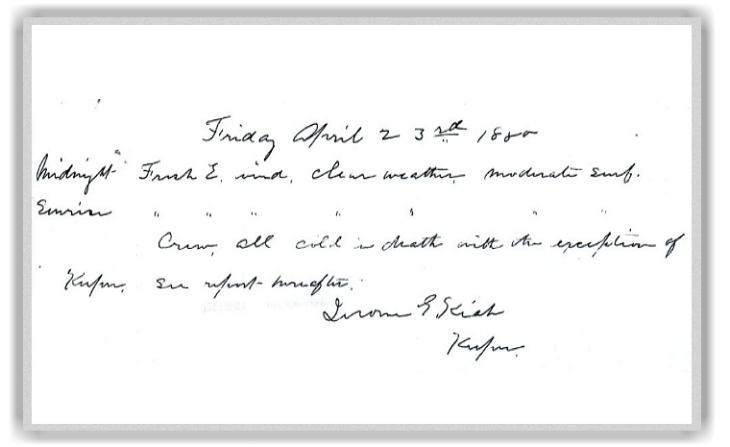 Friday April 23rd 1880
Midnight Fresh E. wind, clear weather, moderate surf.
Sunrise " " " " " " "
Crew, all cold in death with the exception of
Keeper. See report hereafter.
Jerome G Kiah
Keeper.